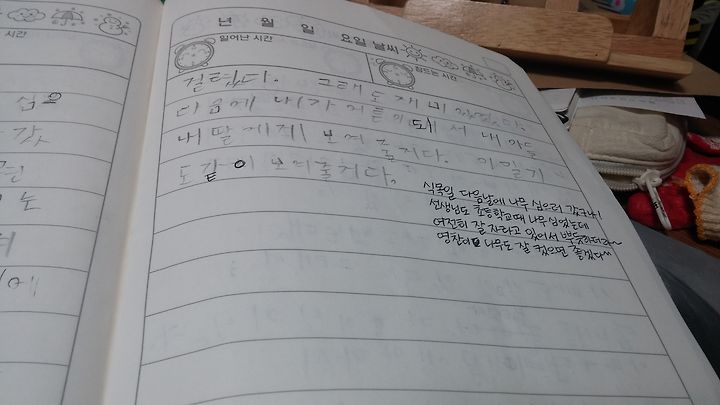 시간
심으
년 월 일 요일 날씨
일어난 시간
잠드는 시간
걸렸다. 그래도 재미있었다.
다음에 내가 어른이 돼서 내 아들
내 딸에게 보여 줄거다. 이 일기
도 같이 보여줄거다.
식목일 다음날에 나무 심으러 갔구나!
선생님도 초등학교때 나무 심었는데
여전히 잘 자라고 있어서 뿌듯하더라~
명찬이 나무도 잘 컸으면 좋겠다^^